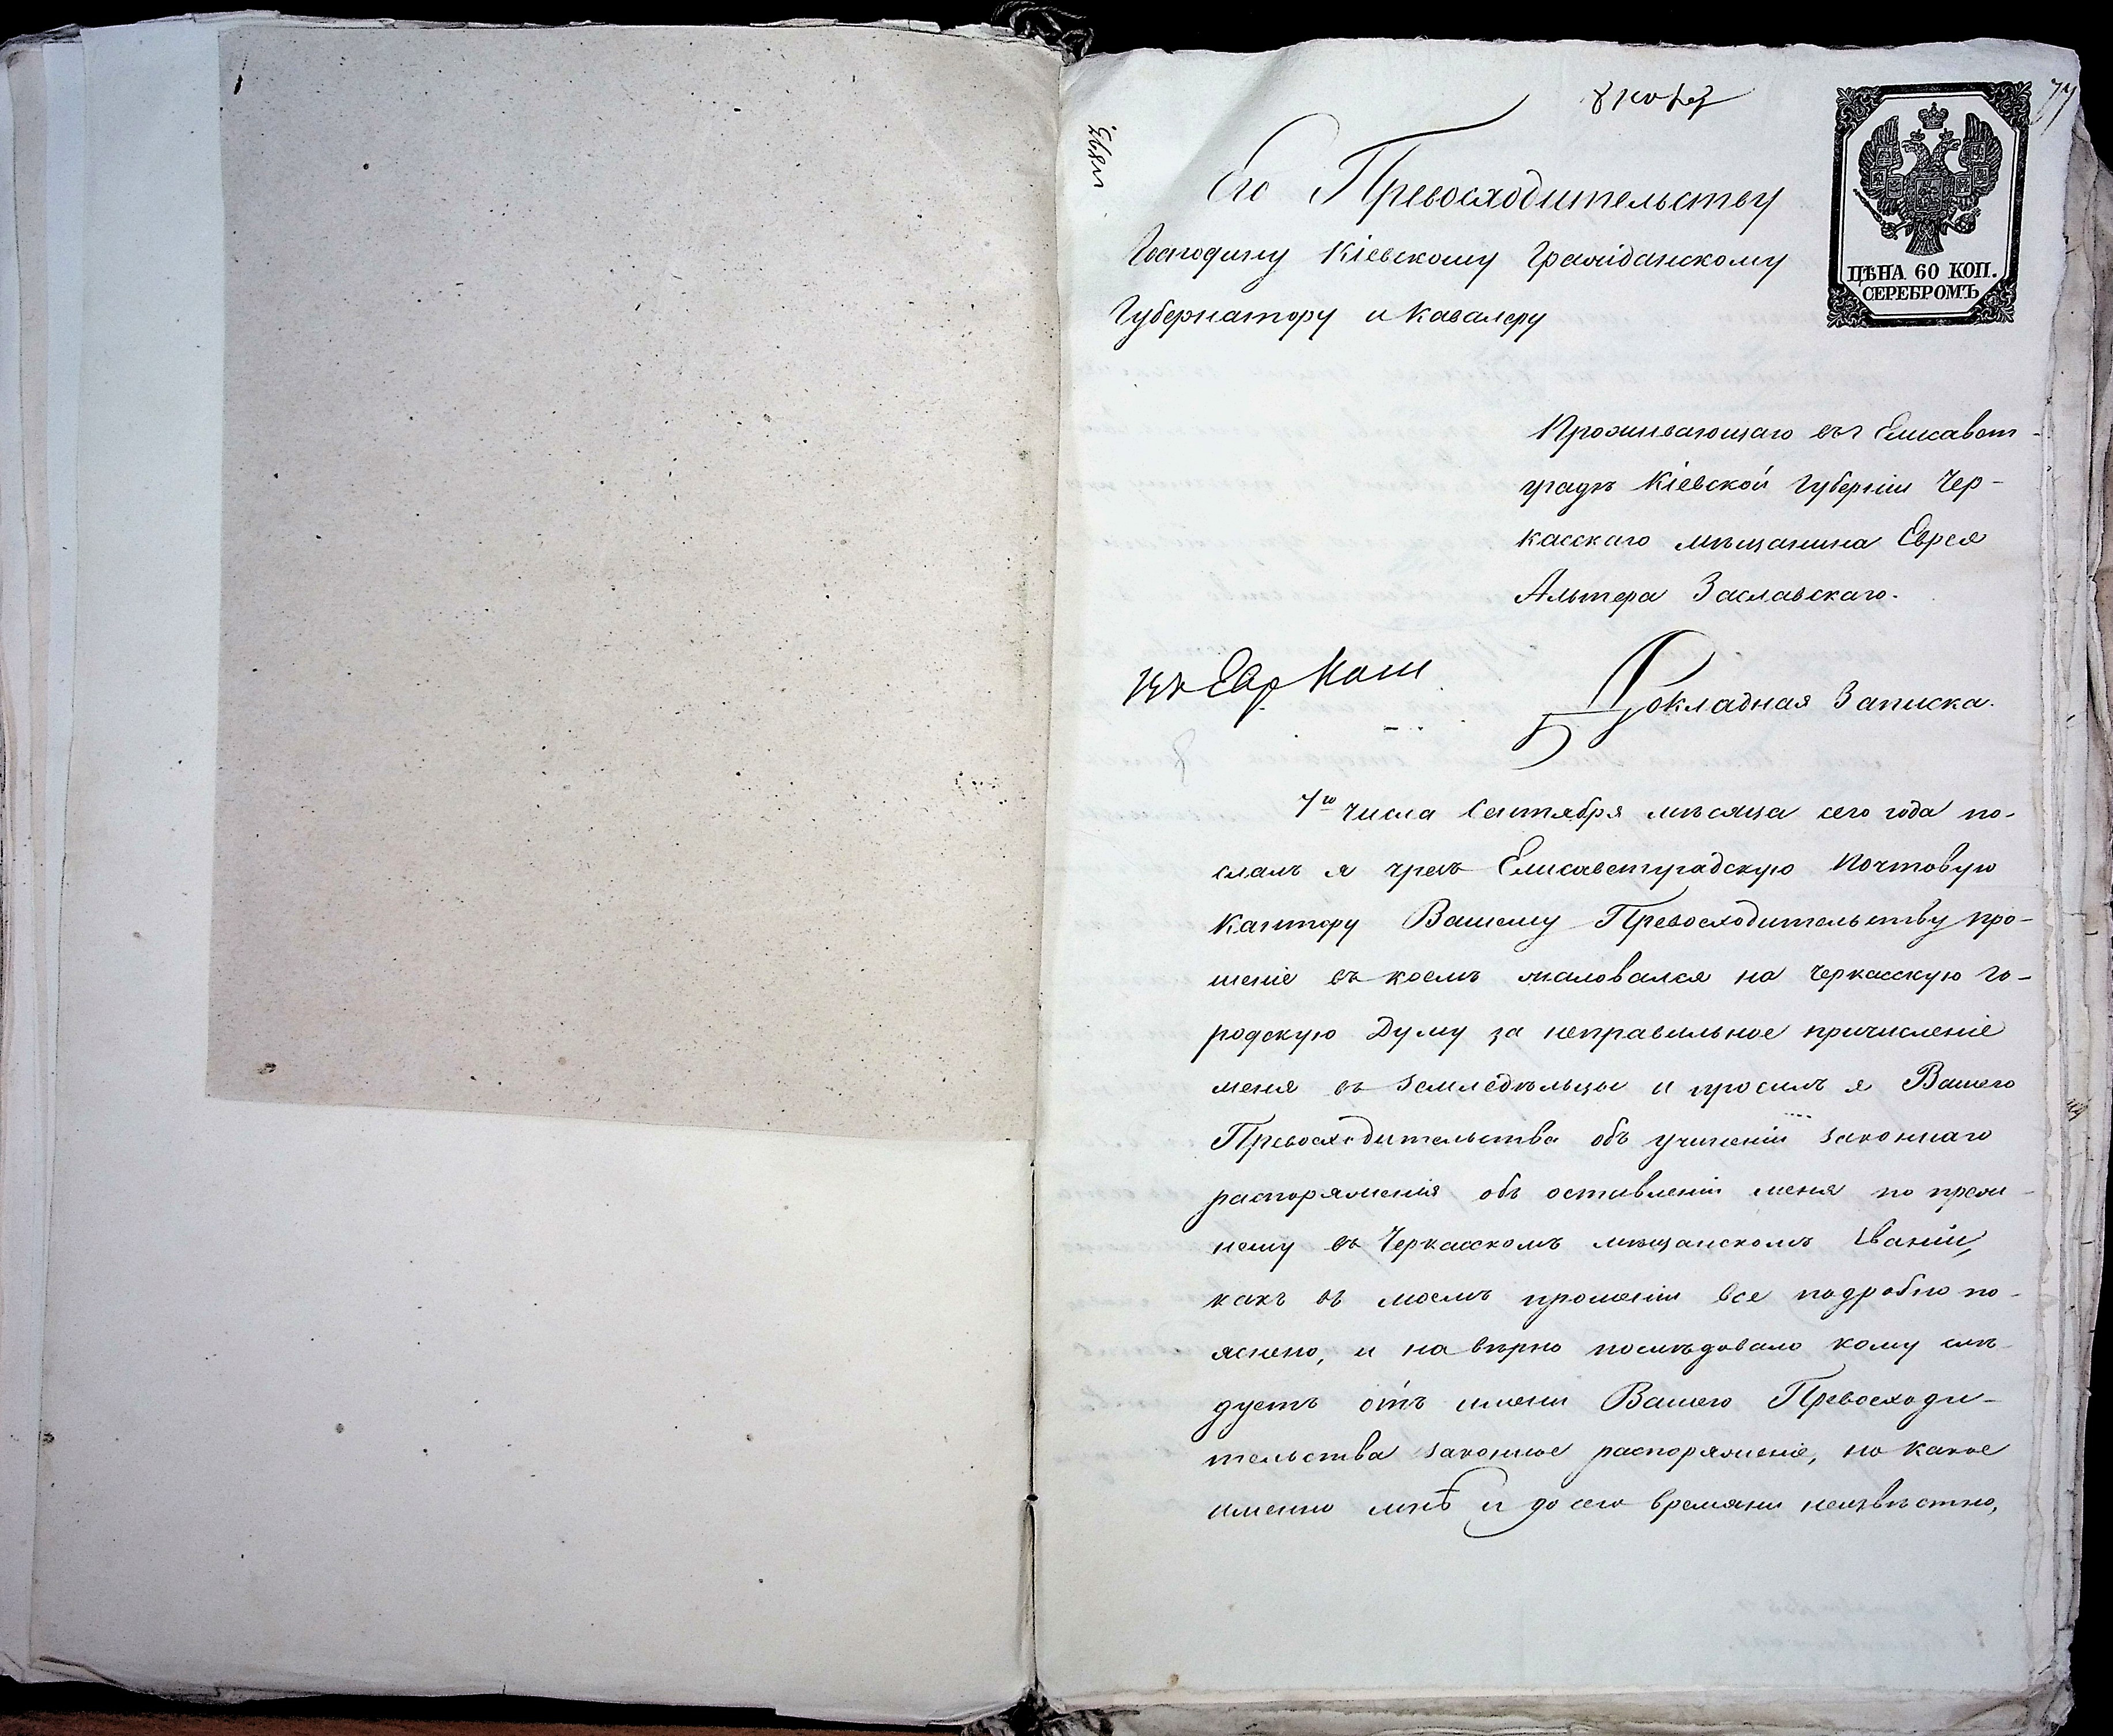 Его Превосходительству
Господину Кіевскому Гражданскому
Губернатору и Кавалеру
ЦѢНА 60 КОП.
СЕРЕБРОМЪ
Проживающаго въ Елисавет-
градѣ Кіевской Губерніи Чер-
касскаго мѣщанина Еврея
Альтера Заславскаго.
Докладная Записка.
7го числа Сентября мѣсяца сего года по-
слалъ я чрезъ Елисаветградскую Почтовую
Кантору Вашему Превосходительству про-
шеніе въ коемъ жаловался на Черкасскую го-
родскую Думу за неправильное причисленіе
меня въ Земледѣльцы и просилъ я Вашего
Превосходительства объ учиненіи законнаго
распоряженія объ оставленіи меня по преж-
нему въ Черкасскомъ мѣщанскомъ званіи,
какъ въ моемъ прошеніи все подробно по-
яснено, и на вѣрно послѣдовало кому слѣ-
дуетъ отъ имени Вашего Превосходи-
тельства законное распоряженіе, но какое
именно мнѣ и до сего времяни неизвѣстно,